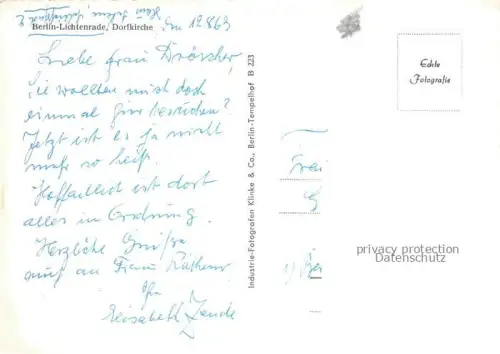 Berlin-Lichtenrade, Dorfkirche
12 8 63
Liebe Frau Dröscher,
Sie wollten mich doch
einmal hier besuchen?
Jetzt ist es ja nicht
mehr so heiß.
Hoffentlich ist dort
alles in Ordnung.
Herzliche Grüße
auch an Frau
Ihre
Elisabeth
Industrie-Fotografen Klinke & Co., Berlin-Tempelhof B 223
Echte
Fotografie
privacy protection
Datenschutz